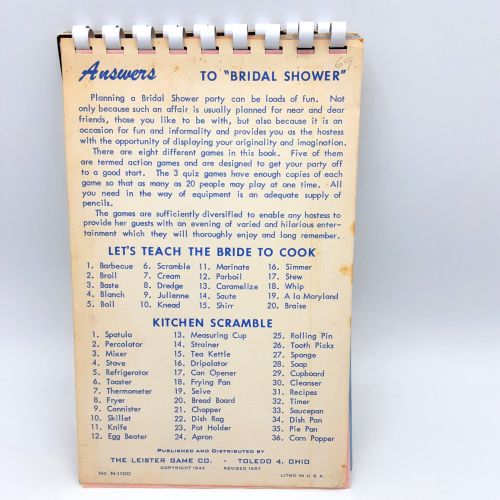 69.
Answers TO "BRIDAL SHOWER"
Planning a Bridal Shower party can be loads of fun. Not
only because such an affair is usually planned for near and dear
friends, those you like to be with, but also because it is an
occasion for fun and informality and provides you as the hostess
with the opportunity of displaying your originality and imagination.
There are eight different games in this book. Five of them
are termed action games and are designed to get your party off
to a good start. The 3 quiz games have enough copies of each
game so that as many as 20 people may play at one time. All
you need in the way of equipment is an adequate supply of
pencils.
The games are sufficiently diversified to enable any hostess to
provide her guests with an evening of varied and hilarious enter-
tainment which they will thoroughly enjoy and long remember.
LET'S TEACH THE BRIDE TO COOK
1. Barbecue 6. Scramble 11. Marinate 16. Simmer
2. Broil 7. Cream 12. Parboil 17. Stew
3. Baste 8. Dredge 13. Caramelize 18. Whip
4. Blanch 9. Julienne 14. Saute 19. A la Maryland
5. Boil 10. Knead 15. Shirr 20. Braise
KITCHEN SCRAMBLE
1. Spatula 13. Measuring Cup 25. Rolling Pin
2. Percolator 14. Strainer 26. Tooth Picks
3. Mixer 15. Tea Kettle 27. Sponge
4. Stove 16. Dripolator 28. Soap
5. Refrigerator 17. Can Opener 29. Cupboard
6. Toaster 18. Frying Pan 30. Cleanser
7. Thermometer 19. Seive 31. Recipes
8. Fryer 20. Bread Board 32. Timer
9. Cannister 21. Chopper 33. Saucepan
10. Skillet 22. Dish Pan 34. Dish Pan
11. Knife 23. Pot Holder 35. Pie Pan
12. Egg Beater 24. Apron 36. Corn Popper
PUBLISHED AND DISTRIBUTED BY
THE LEISTER GAME CO. - TOLEDO 4, OHIO
No. N-1100 COPYRIGHT 1949 - REVISED 1957 LITHO IN U.S.A.